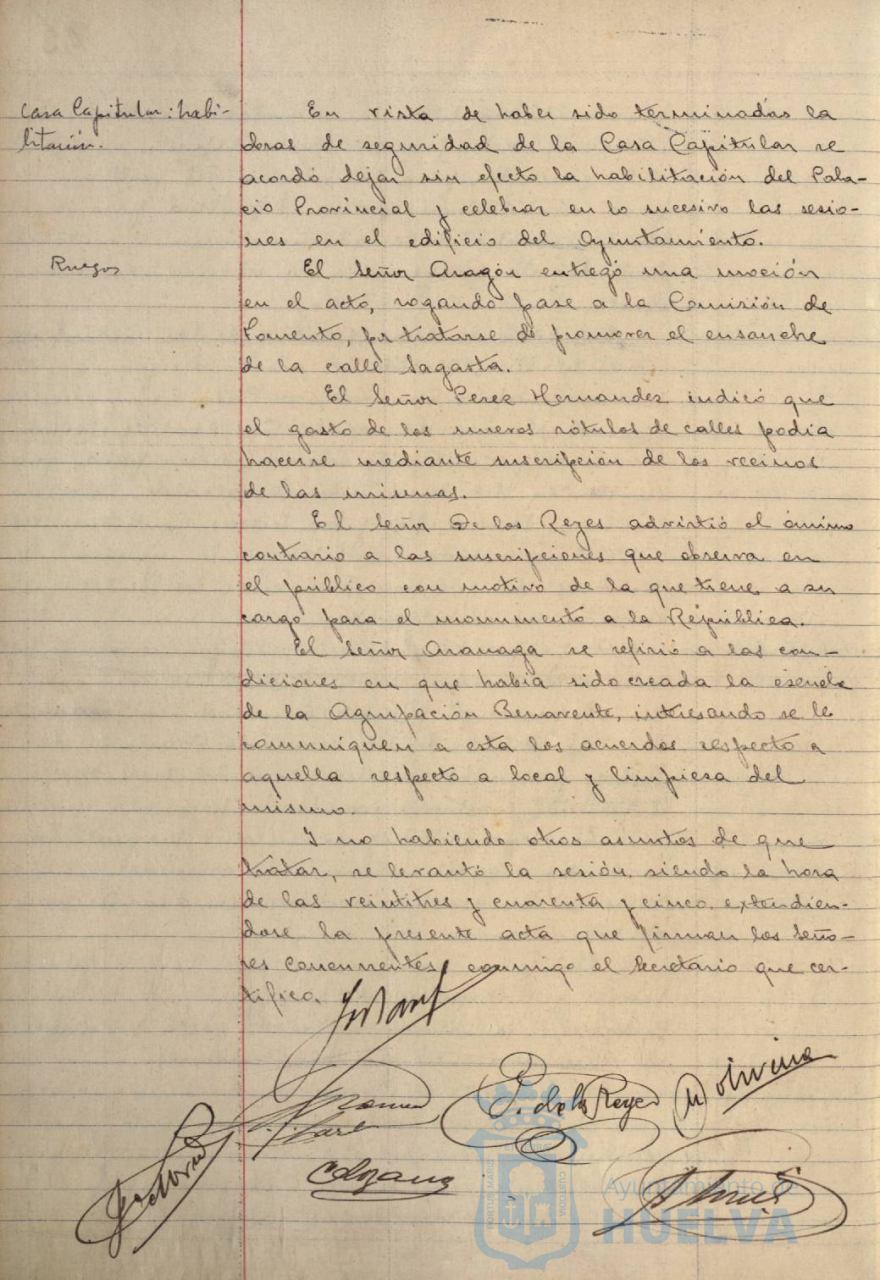 Casa Capitular: habi-
litación.
En vista de haber sido terminadas la
obras de seguridad de la Casa Capitular se
acordó dejar sin efecto la habilitación del Pala-
cio Provincial y celebrar en lo sucesivo las sesio-
nes en el edificio del Ayuntamiento.
Ruegos
El Señor Aragón entregó una moción
en el acto, rogando pase a la Comisión de
Fomento, por tratarse de promover el ensanche
de la calle Sagasta.
El Señor Perez Hernandez indicó que
el gasto de los nuevos rótulos de calles podia
hacerse mediante suscripción de los vecinos
de las mismas.
El Señor De los Reyes advirtió el ánimo
contrario a las suscripciones que observa en
el público con motivo de la que tiene a su
cargo para el monumento a la República.
El Señor Aranaga se refirió a las con-
diciones en que habia sido creada la escuela
de la Agrupación Benavente, interesando se le
comuniquen a esta los acuerdos respecto a
aquella respecto a local y limpiesa del
mismo.
Y no habiendo otros asuntos de que
tratar, se levantó la sesión, siendo la hora
de las veintitres y cuarenta y cinco, extendien-
dose la presente acta que firman los Seño-
res concurrentes, conmigo el Secretario que cer-
tifico.
P. de los Reyes
Ayuntamiento de
HUELVA